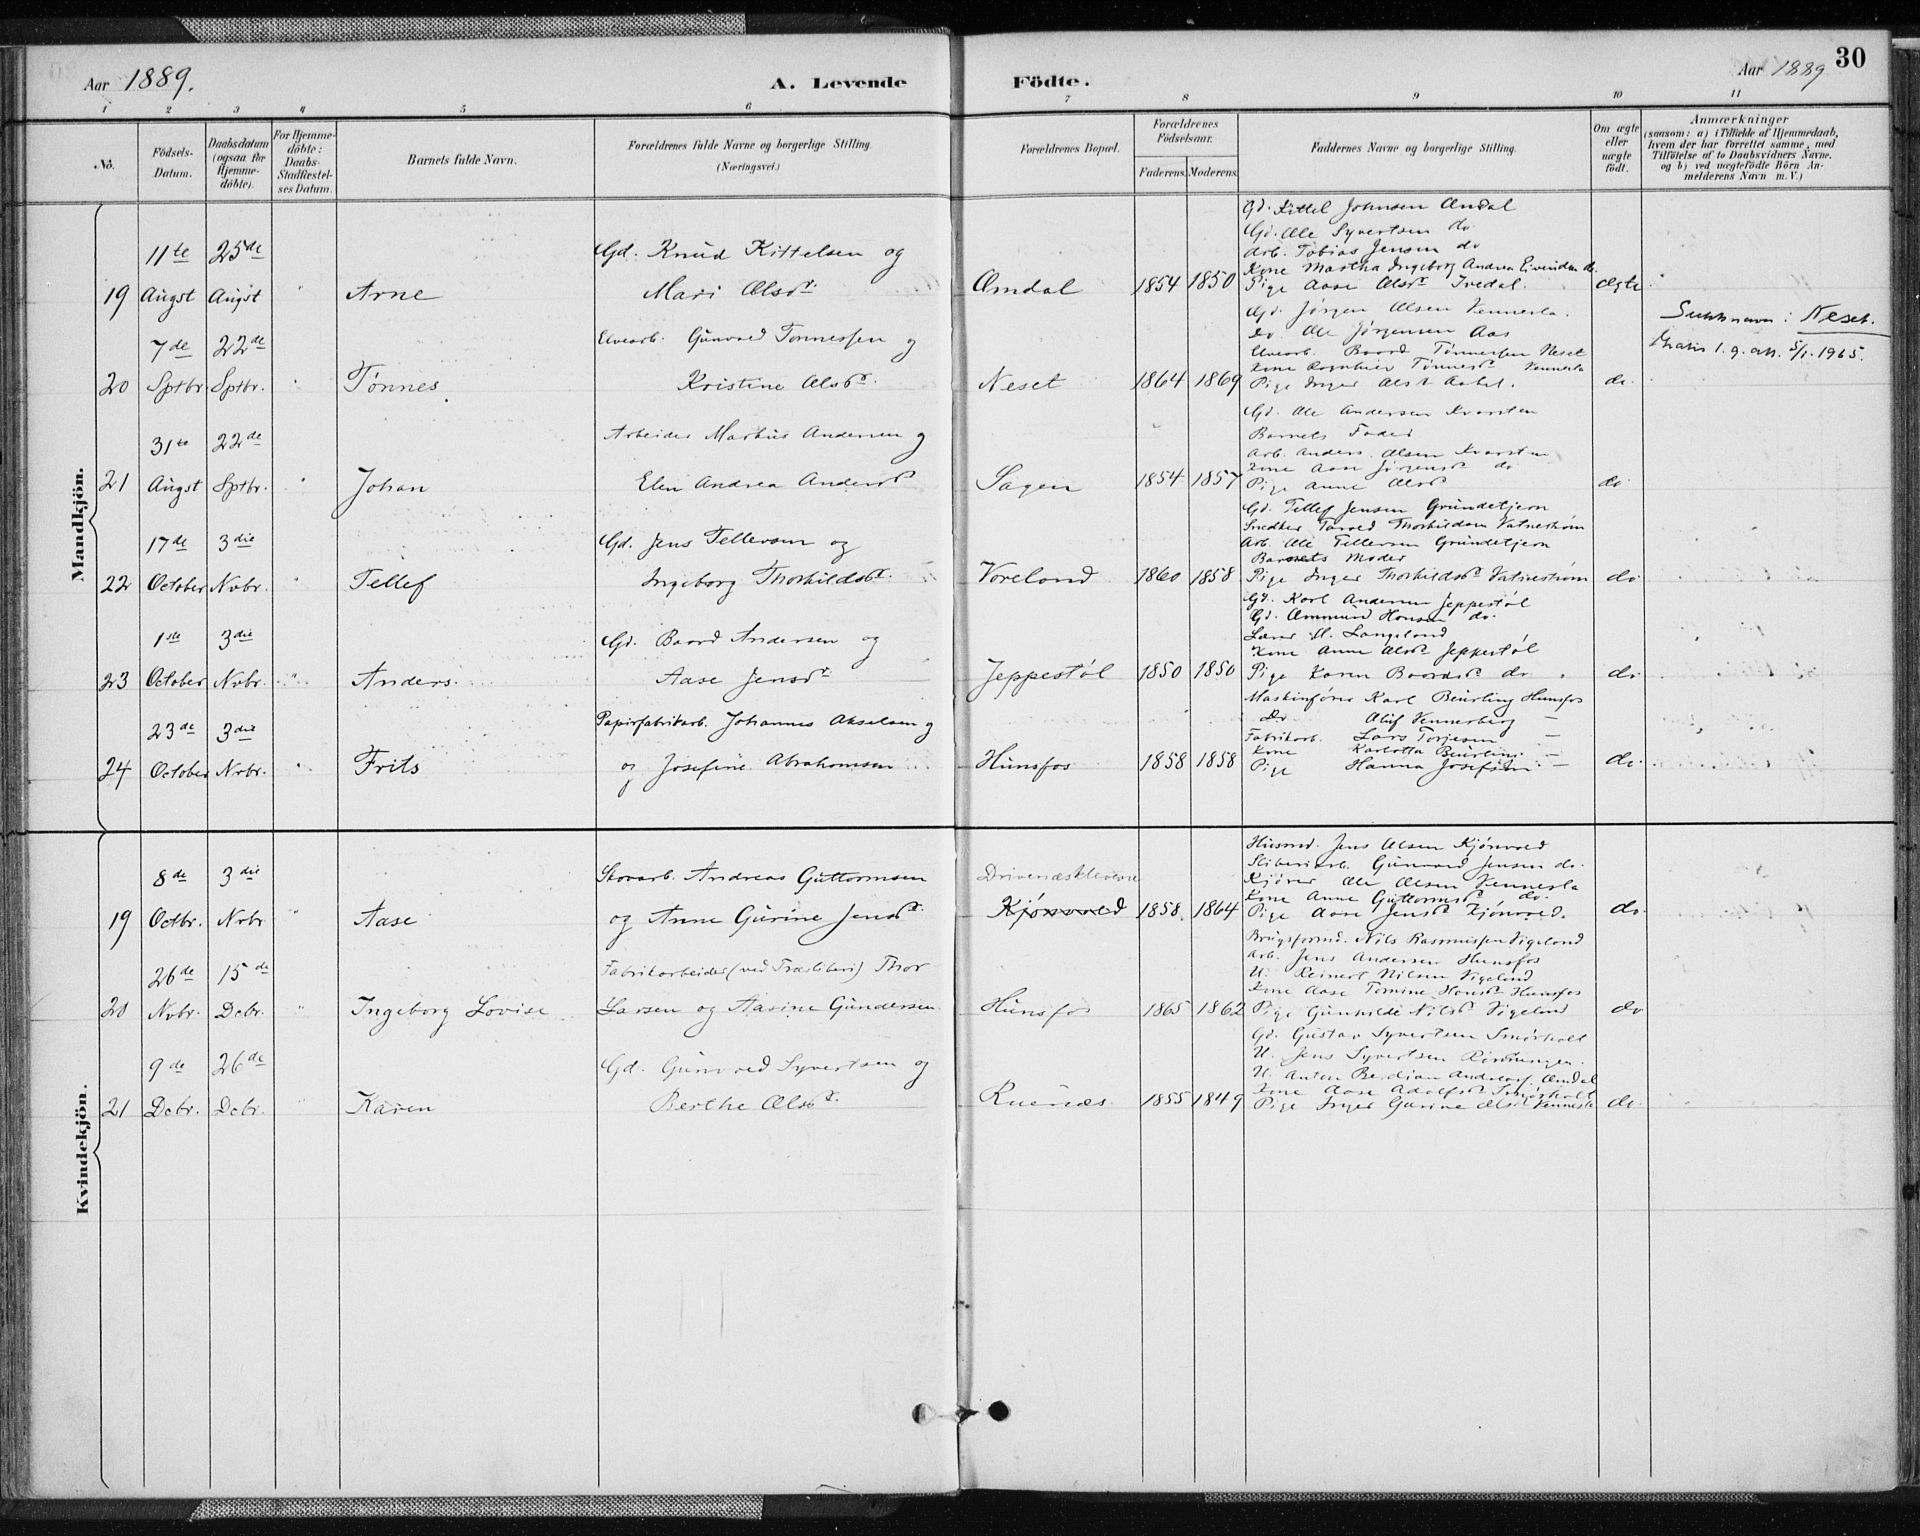 Aar 1889.
A. Levende Födte.
Aar 1889
30
1 2 3 4 5 6 7 8 9 10 11
No.
Födsels-Datum.
Daabsdatum (ogsaa for Hjemme-döbte).
For Hjemme-döbte: Daabs-Stadfæstel-ses Datum.
Barnets fulde Navn.
Forældrenes fulde Navne og borgerlige Stilling.
(Næringsvei.)
Forældrenes Bopæl.
Forældrenes Födselsaar.
Faderens. Moderens.
Faddernes Navne og borgerlige Stilling.
Om ægte eller uægte födt.
Anmærkninger
(saasom: a) i Tilfælde af Hjemmedaab,
hvem der har forrettet samme, med
Tilföielse af to Daabsvidners Navne,
og b) ved uægtefödte Börn An-
melderens Navn m. V.)
Mandkjön.
11te 25de
19 Augst Augst " Arne
Gd. Knud Kittelsen og
Mari Olsdr.
Omdal 1854 1850
Gd. Kittel Johnsen Omdal
Gd. Ole Syvertsen do
Arb. Tobias Jensen do
Kone Martha Ingeborg Andrea Eivindsen do.
Pige Aase Olsdr Ivedal.
ægte
7de 22de
20 Sptbr. Sptbr. " Tønnes.
Gunvald Tønnessen og
Kristine Olsdr.
Neset 1864 1869
Gd. Jørgen Olsen Vennesla.
do Ole Jørgensen Aas
Baard Tønnessen Neset
Kone Tønnesdr Vennesla
Pige Inger Olsdr
do.
Slektsnavn: Neset.
5/1. 1965.
31te 22de
21 Augst Sptbr. " Johan
Arbeider Markus Andersen og
Elen Andrea Andersdr
Sagen 1854 1857
Gd. Ole Andersen Kvarsten
Barnets Fader
Arb. Anders Olsen Kvarsten
Kone Aase Jørgensdr do
Pige Anne Olsdr
do
17de 3die
22 October Nvbr. " Tellef
Gd. Jens Tellefsen og
Ingeborg Thorkildsdr.
Voreland 1860 1858
Gd. Tellef Jensen Grundetjern
Snedker Torvald Thorkildsen Vatnestrøm
Arb. Ole Tellefsen Grundetjern
Barnets Moder
Pige Inger Thorkildsdr Vatnestrøm
do
1ste 3die
23 October Nvbr. " Anders.
Gd. Baard Andersen og
Aase Jensdr
Jeppestøl 1850 1850
Gd. Karl Andersen Jeppestøl
Gd. Ommund Hansen do.
Lærer M. Langeland
Kone Anne Olsdr Jeppestøl
Pige Karen Baardsdr do
do
23de 3die
24 October Nvbr. " Frits
Papirfabrikarb. Johannes Akselsen og
og Josefine Abrahamsen
Hunsfos 1858 1858
Maskinfører Karl Beurling Hunsfos
Do Oluf Vennerberg —
Fabrikarb. Lars Torjesen —
Kone Karlotta Beurling —
Pige Hanna Josefsen —
do.
Kvindekjön.
8de 3die
19 Octbr. Nvbr " Aase
Skovarb. Andreas Guttormsen
og Anne Gurine Jensdr.
Drivenæskleivene
Kjønvold 1858. 1864
Husmd. Jens Olsen Kjønvold
Sliberiarb. Gunvald Jensen do.
Kjører Ole Olsen Vennesla
Kone Anne Guttormsdr do.
Pige Aase Jensdr Kjønvold.
do.
26de 15de
20 Nvbr. Dcbr. " Ingeborg Lovise
Fabrikarbeider (ved Træsliberi) Thor
Larsen og Aasine Gundersen
Hunsfos 1865 1862
Brugsformd. Nils Rasmussen Vigeland
Arb. Jens Andersen Hunsfos
U. Reinert Nilsen Vigeland
Kone Aase Tomine Hansdr Hunsfos
Pige Gunhilde Nilsdr Vigeland
do
9de 26de
21 Dcbr. Dcbr. " Karen
Gd. Gunvald Syvertsen og
Berthe Olsdr.
Ruenæs. 1855 1849
Gd. Gustav Syvertsen Smørholt
U. Jens Syvertsen Rønningen.
U. Anton Berdian Omdal
Kone Aase Adolfsdr Smørholt
Pige Inger Gurine Olsdr Vennesla
do.